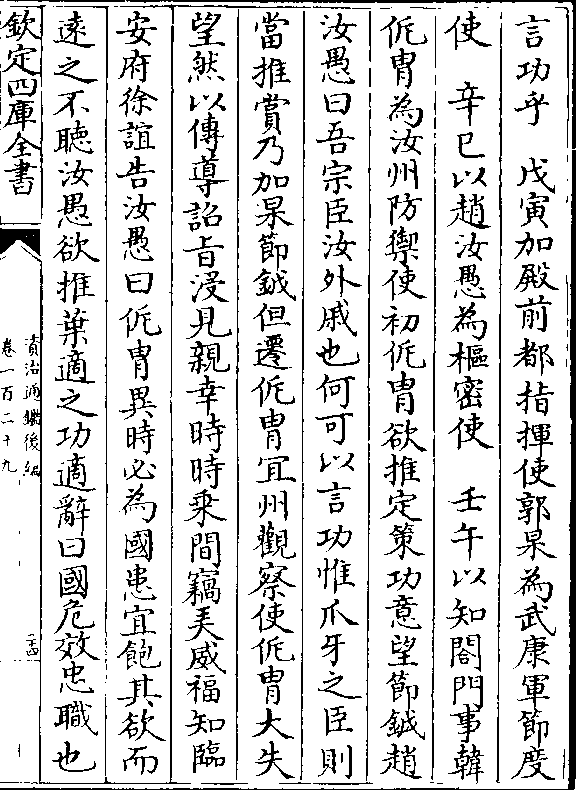 言功乎　戊寅加殿前都指揮使郭杲為武康軍節度
使　辛巳以趙汝愚為樞密使　壬午以知閤門事韓
侂胄為汝州防禦使初侂胄欲推定策功意望節鉞趙
汝愚曰吾宗臣汝外戚也何可以言功惟爪牙之臣則
當推賞乃加杲節鉞但遷侂胄宜州觀察使侂胄大失
望然以傳導詔旨浸見親幸時時乗間竊美威福知臨
安府徐誼告汝愚曰侂胄異時必為國患宜飽其欲而
逺之不聽汝愚欲推葉適之功適辭曰國危效忠職也
欽定四庫全書
資治通鑑後編
卷一百二十九
二十四